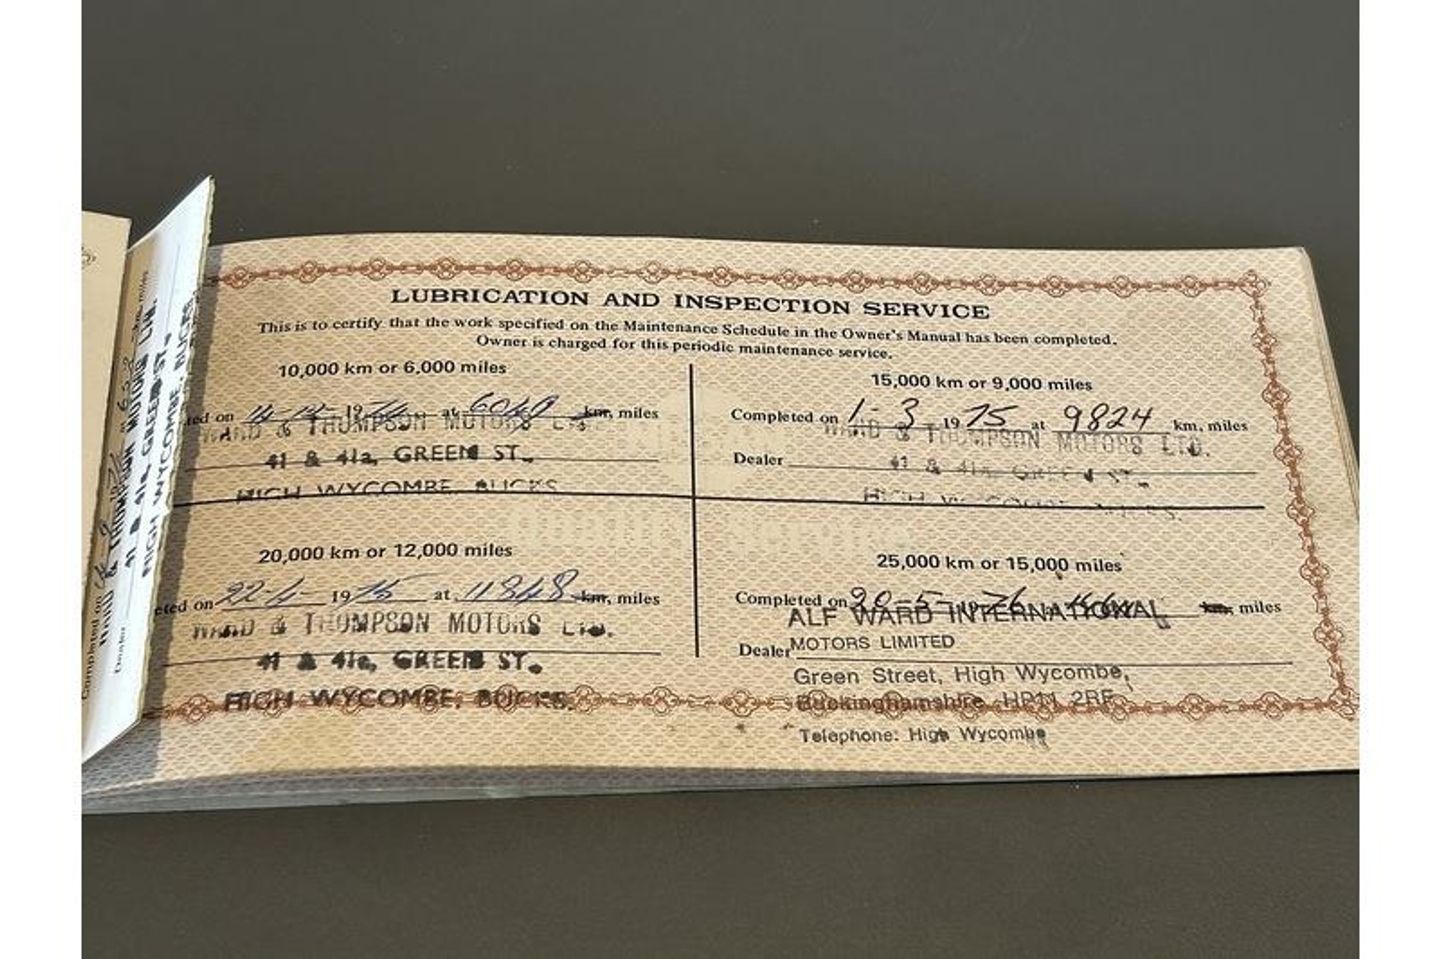 LUBRICATION AND INSPECTION SERVICE
This is to certify that the work specified on the Maintenance Schedule in the Owner's Manual has been completed.
Owner is charged for this periodic maintenance service.
10,000 km or 6,000 miles
ted on 19 at 6040 km, miles
WARD & THOMPSON MOTORS LTD.
41 & 41a, GREEN ST.
HIGH WYCOMBE, BUCKS
15,000 km or 9,000 miles
Completed on 1-3 1975 at 9824 km, miles
WARD & THOMPSON MOTORS LTD.
Dealer
41 & 41a, GREEN ST.
HIGH WYCOMBE, BUCKS.
20,000 km or 12,000 miles
eted on 1975 at 11848 km, miles
WARD & THOMPSON MOTORS LTD.
41 & 41a, GREEN ST.
HIGH WYCOMBE, BUCKS.
25,000 km or 15,000 miles
Completed on 20-5-1976 at km, miles
ALF WARD INTERNATIONAL
Dealer MOTORS LIMITED
Green Street, High Wycombe,
Buckinghamshire HP11 2RF
Telephone: High Wycombe
Completed on
Dealer
WARD & THOMPSON MOTORS LTD.
41 & 41a, GREEN ST.
HIGH WYCOMBE, BUCKS